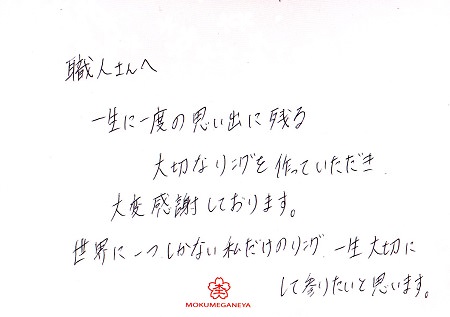 職人さんへ
一生に一度の思い出に残る
大切なリングを作っていただき
大変感謝しております。
世界に一つしかない私だけのリング 一生大切に
して参りたいと思います。
MOKUMEGANEYA